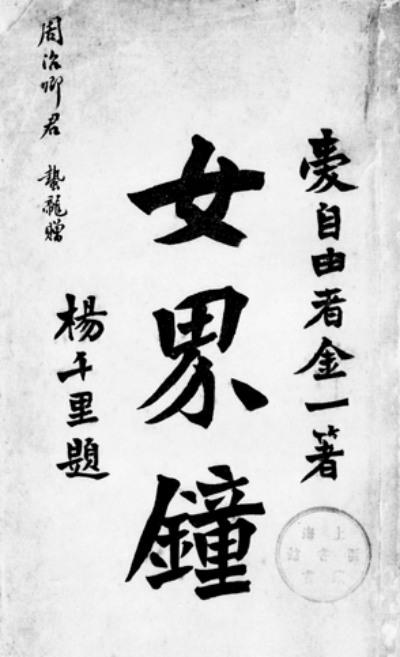 愛自由者金一著
女界鐘
楊千里題
周治卿君 蟄龍贈
上海